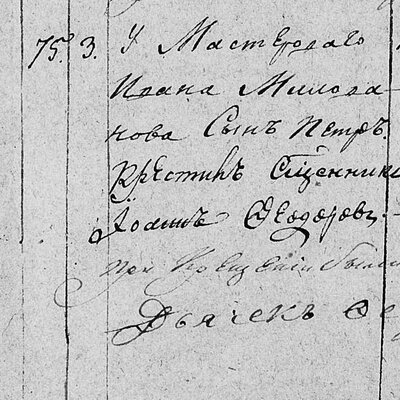 75. 3. У Мастероваго
Ивана Милова-
нова Сынъ Петръ.
Крестилъ Сщенникъ
Іоаннъ Ѳеодоровъ.
при Крещеніи были
Дьячекъ Ѳе